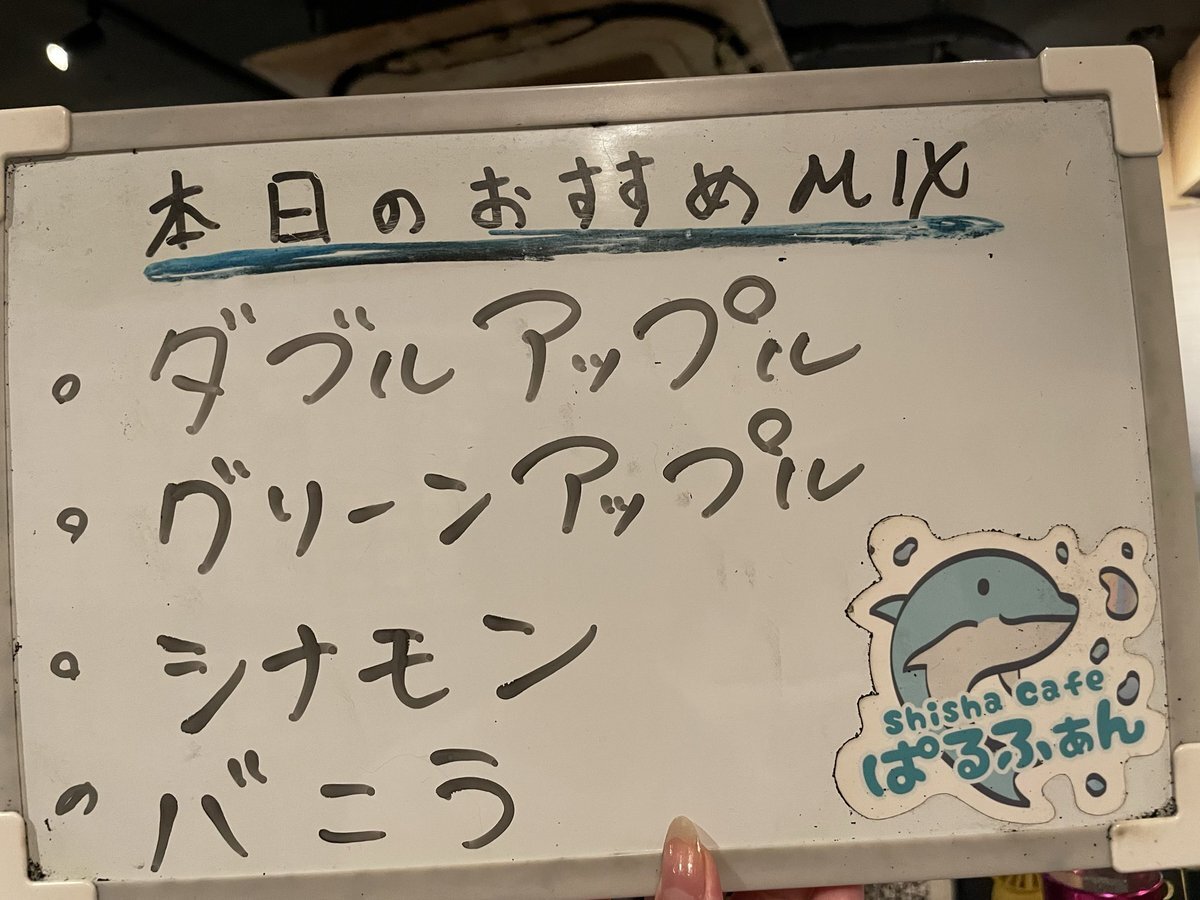 本日のおすすめMIX
・ダブルアップル
・グリーンアップル
・シナモン
・バニラ
shisha cafe
ぱるふぁん